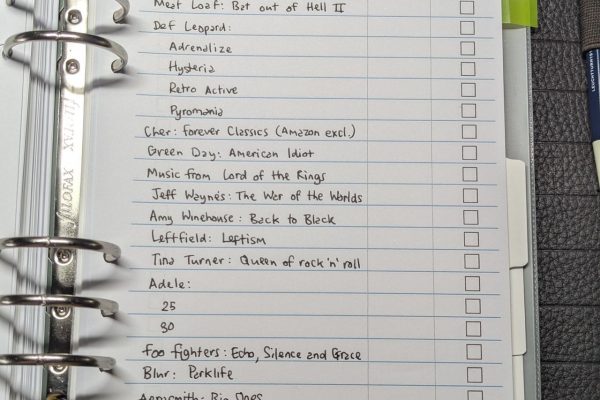 Meat Loaf: Bat out of Hell II
Def Leopard:
Adrenalize
Hysteria
Retro Active
Pyromania
Cher: Forever Classics (Amazon excl.)
Green Day: American Idiot
Music from Lord of the Rings
Jeff Wayne's: The War of the Worlds
Amy Winehouse: Back to Black
Leftfield: Leftism
Tina Turner: Queen of rock 'n' roll
Adele:
25
30
Foo Fighters: Echo, Silence and Grace
Blur: Parklife
Aerosmith: Big Ones
FILOFAX
LEUCHTTURM